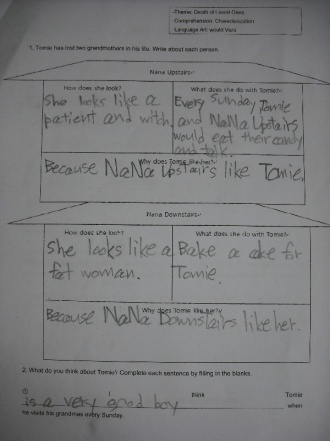 -Theme: Death of Loved Ones
-Comprehension: Characterization
-Language Art: would Vers
1. Tomie has lost two grandmothers in his life. Write about each person.
Nana Upstairs
How does she look?
She looks like a
patient and with.
What does she do with Tomie?
Every Sunday, Tomie
and NaNa Upstairs
would eat their candy
and talk.
Why does Tomie like her?
Because NaNa Upstairs like Tomie.
Nana Downstairs
How does she look?
She looks like a
fat woman.
What does she do with Tomie?
Bake a cake for
Tomie.
Why does Tomie like her?
Because NaNa Downstairs like her.
2. What do you think about Tomie? Complete each sentence by filling in the blanks.
① think Tomie
is a very good boy when
he visits his grandmas every Sunday.